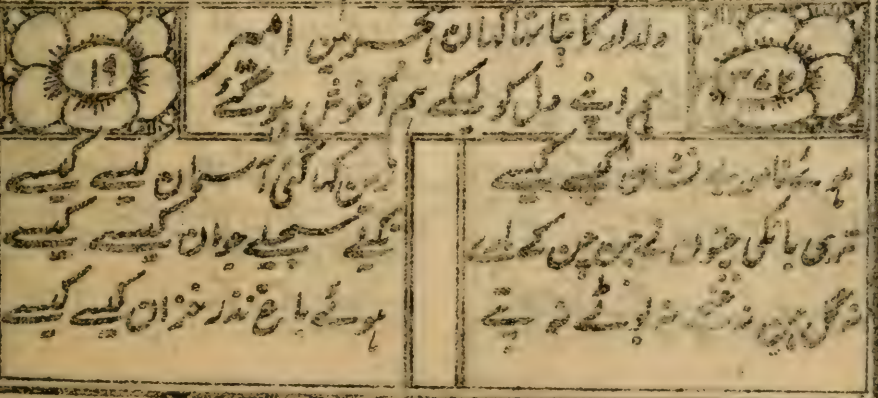 ۱۹
دلدار کا پتا امیر
ہم اپنے دل کو لیکے ہم آغوش ہوگئے
ہوئے نامور بے نشان کیسے کیسے
زمین کھا گئی آسمان کیسے کیسے
تری بانکی چتون نے چن چن کے مارے
نکیلے سجیلے جوان کیسے کیسے
نہ گل ہین نہ غنچے نہ بوٹے نہ پتے
ہوئے باغ نذر خزان کیسے کیسے